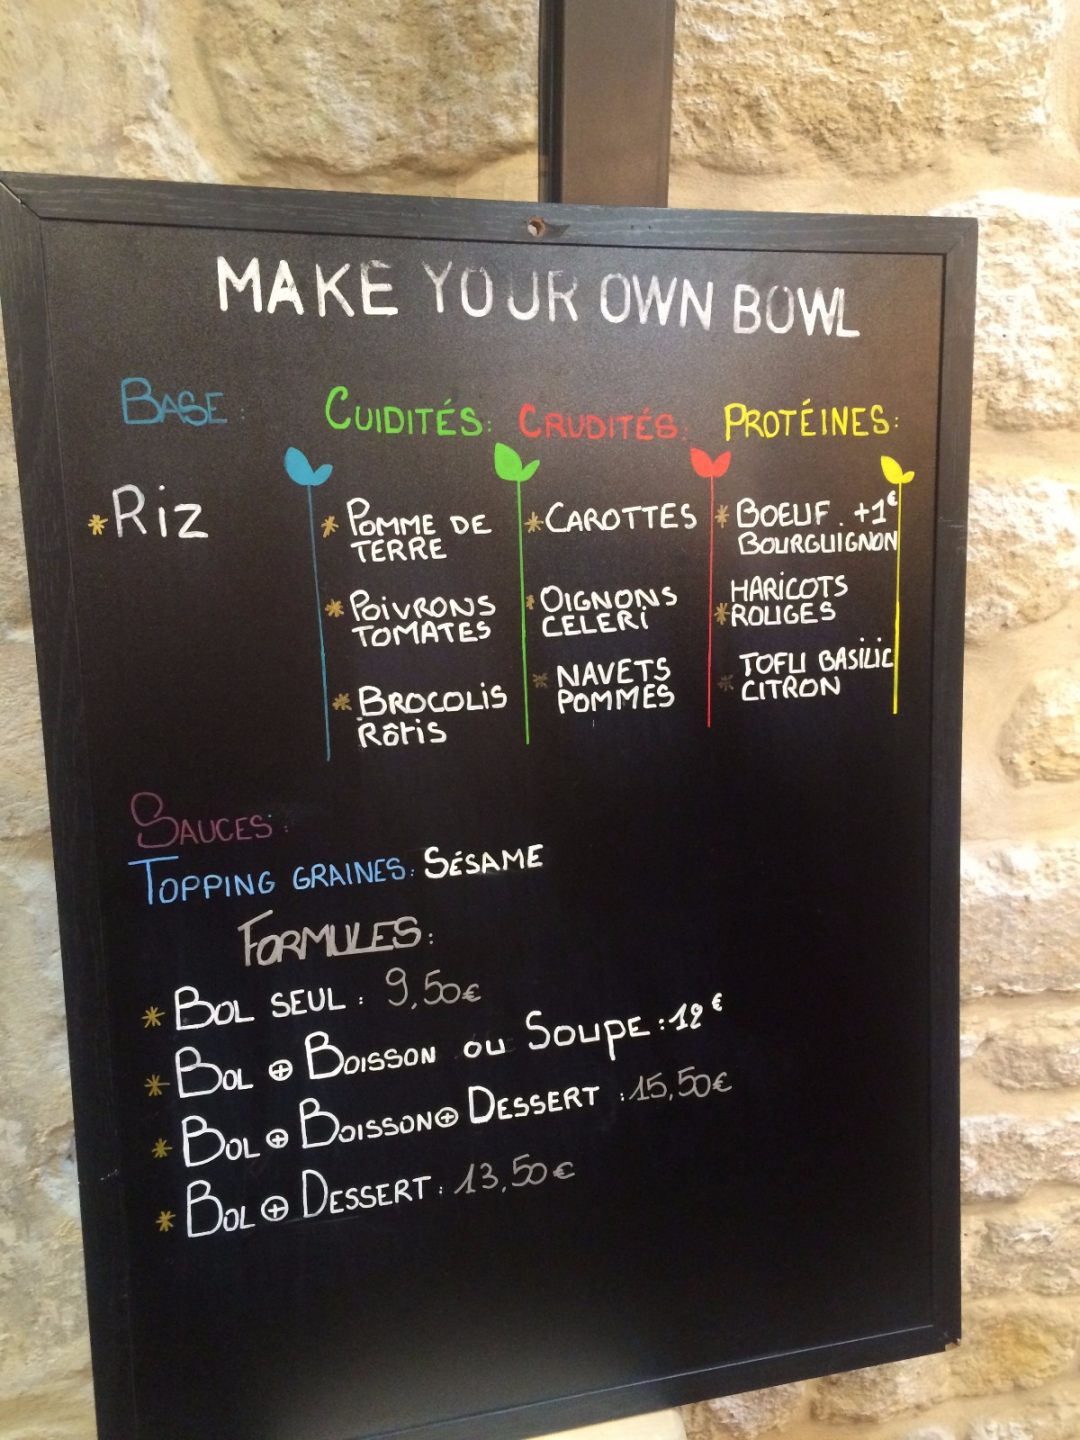 MAKE YOUR OWN BOWL
BASE:
* Riz
CUIDITÉS:
* POMME DE
TERRE
* POIVRONS
TOMATES
* BROCOLIS
RôtiS
CRUDITÉS:
* CAROTTES
* OIGNONS
CELERI
* NAVETS
POMMES
PROTÉINES:
* BOEUF . +1€
BOURGUIGNON
HARICOTS
* ROUGES
* TOFU BASILIC
CITRON
SAUCES:
TOPPING GRAINES: SÉSAME
FORMULES:
* BOL SEUL : 9,50€
* BOL ⊕ BOISSON OU SOUPE : 12€
* BOL ⊕ BOISSON ⊕ DESSERT : 15,50€
* BOL ⊕ DESSERT : 13,50€